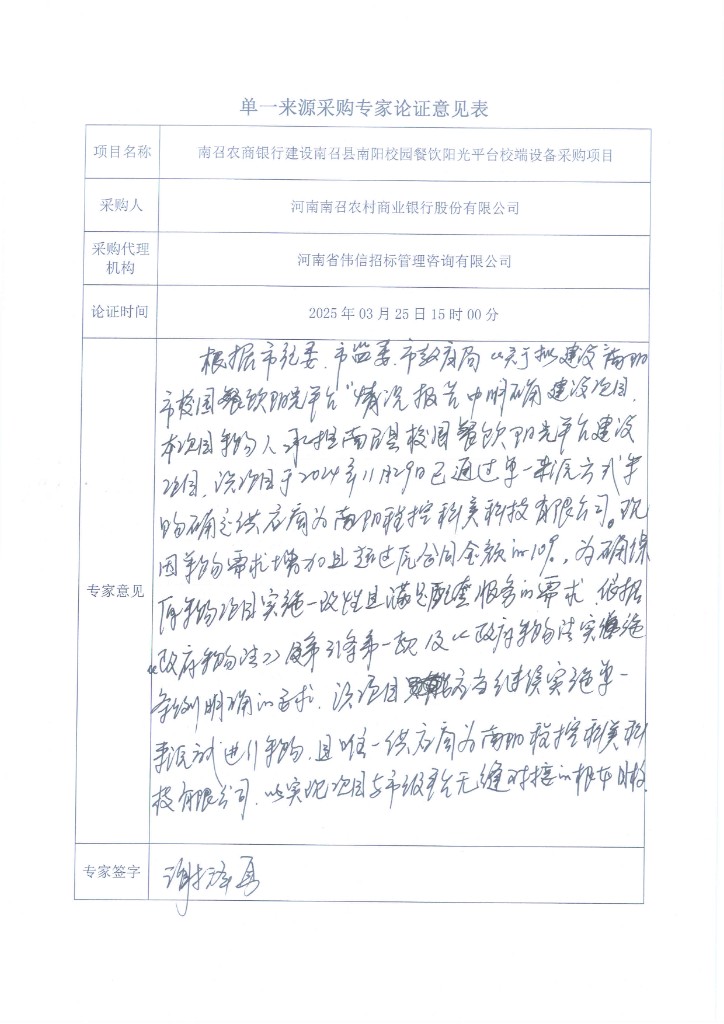 单一来源采购专家论证意见表
项目名称
南召农商银行建设南召县南阳校园餐饮阳光平台校端设备采购项目
采购人
河南南召农村商业银行股份有限公司
采购代理
机构
河南省伟信招标管理咨询有限公司
论证时间
2025年03月25日15时00分
专家意见
根据市纪委、市监委、市教育局"关于拟建设南阳
市校园餐饮阳光平台"情况报告中明确建设项目,
本次项目采购人承担南召县校园餐饮阳光平台建设
项目,该项目于2024年11月29日已通过单一来源方式采
购确定供应商为南阳程控科美科技有限公司。现
因采购需求增加且超过原合同金额的10%,为确保
原有采购项目实施一致性且满足配套服务的需求,依据
《政府采购法》第31条第一款及《政府采购法实施
条例》明确的要求,该项目应当继续实施单一
来源方式进行采购,且唯一供应商为南阳程控科美科
技有限公司,以实现项目与市级平台无缝对接的根本目标。
专家签字